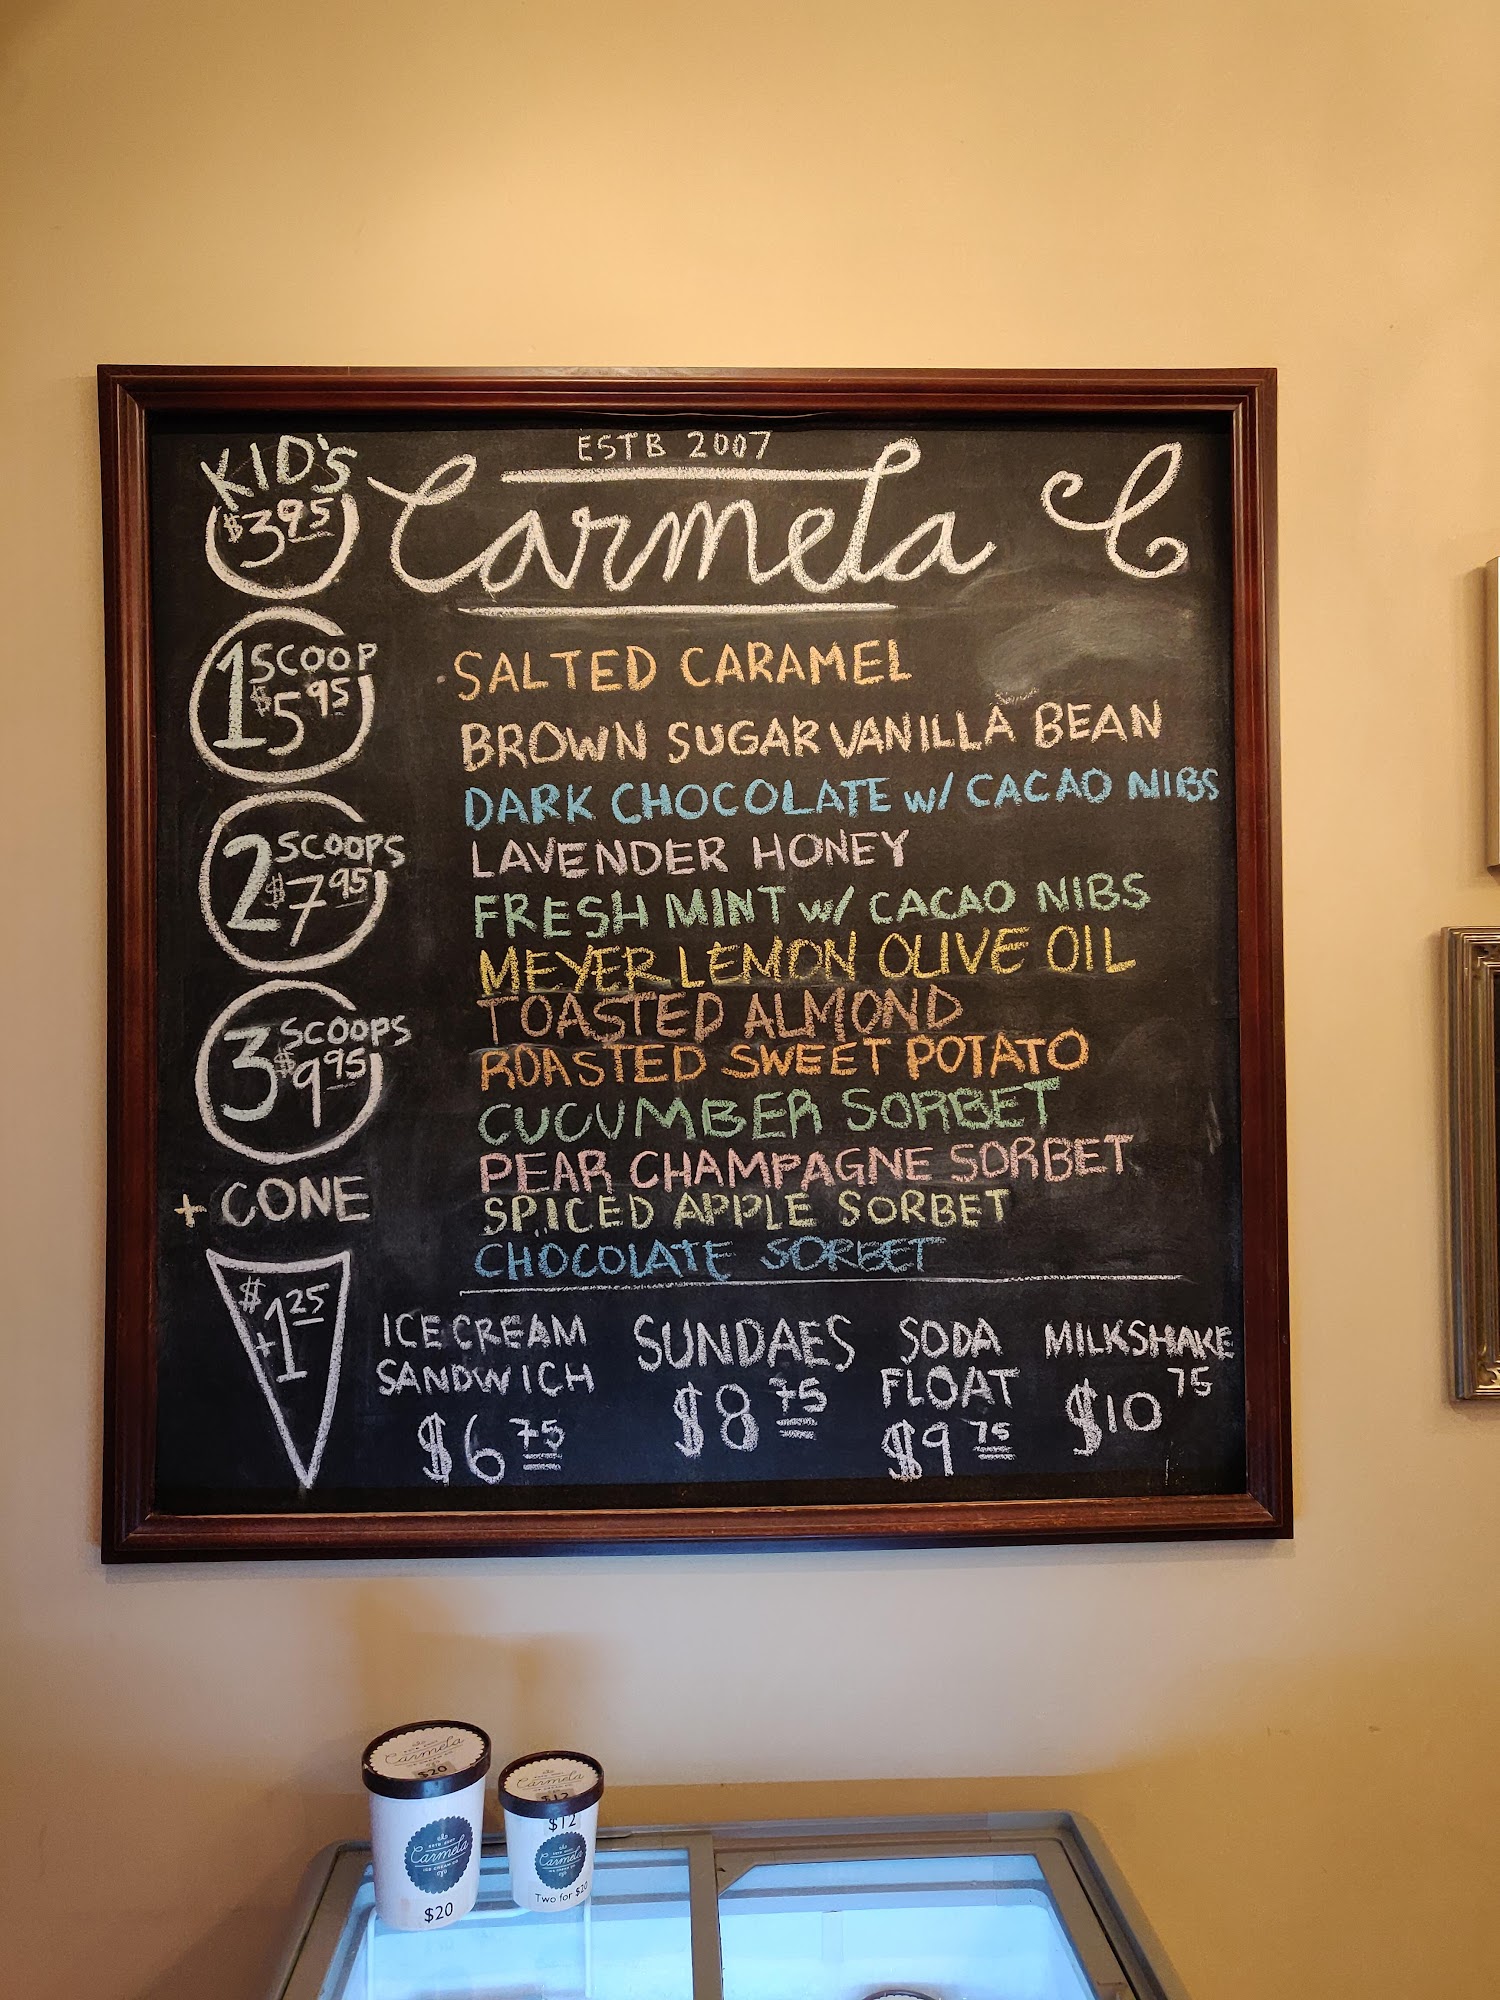 ESTB 2007
Carmela C
KID'S
$3.95
1 SCOOP
$5.95
2 SCOOPS
$7.95
3 SCOOPS
$9.95
+ CONE
$
+1.25
SALTED CARAMEL
BROWN SUGAR VANILLA BEAN
DARK CHOCOLATE W/ CACAO NIBS
LAVENDER HONEY
FRESH MINT W/ CACAO NIBS
MEYER LEMON OLIVE OIL
TOASTED ALMOND
ROASTED SWEET POTATO
CUCUMBER SORBET
PEAR CHAMPAGNE SORBET
SPICED APPLE SORBET
CHOCOLATE SORBET
ICE CREAM
SANDWICH
$6 75
SUNDAES
$8 75
SODA
FLOAT
$9 75
MILKSHAKE
$10 75
Carmela
$20
ESTB 2007
Carmela
ICE CREAM CO
$20
Carmela
$12
$12
Carmela
Two for $20